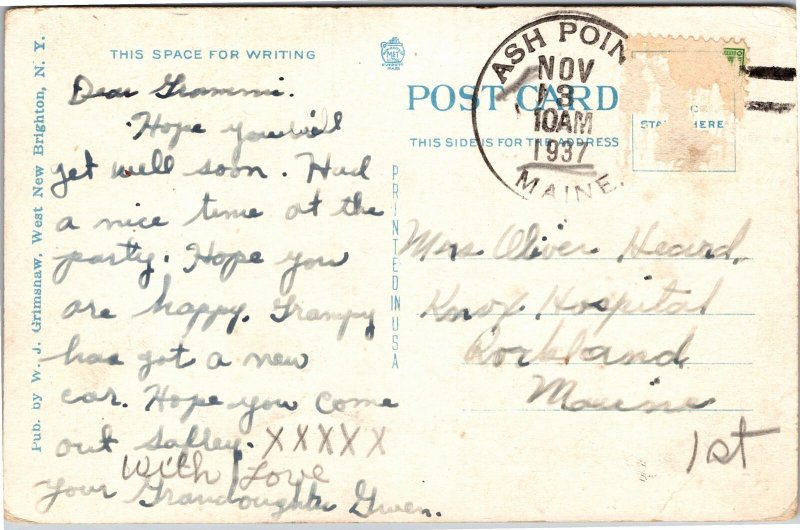 THIS SPACE FOR WRITING
Dear Grammie.
Hope you will
get well soon. Had
a nice time at the
party. Hope you
are happy. Grampy
has got a new
car. Hope you come
out Salley. XXXXX
With Love
your Grandoughter Gwen.
Pub. by W. J. Grimshaw, West New Brighton, N. Y.
PRINTED IN USA
POST CARD
THIS SIDE IS FOR THE ADDRESS
ASH POIN
NOV
13
10AM
1937
MAINE.
HERE
Mrs Oliver Heard,
Knox Hospital
Rockland
Maine
1st